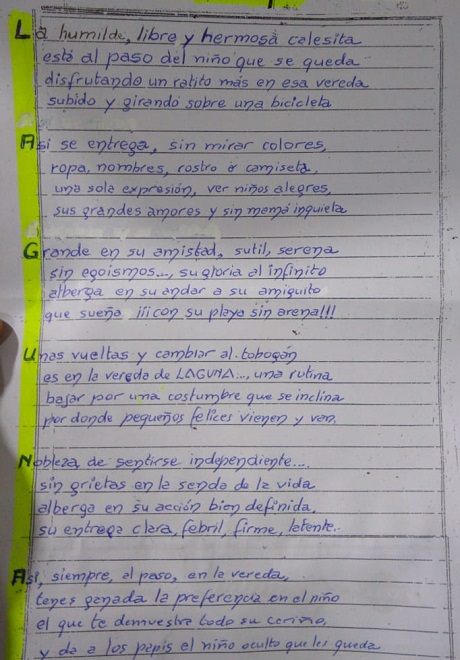 La humilde, libre y hermosa calesita
está al paso del niño que se queda
disfrutando un ratito más en esa vereda
subido y girando sobre una bicicleta
Asi se entrega, sin mirar colores,
ropa, nombres, rostro o camiseta,
una sola expresión, ver niños alegres,
sus grandes amores y sin mamá inquieta
Grande en su amistad, sutil, serena
sin egoismos..., su gloria al infinito
alberga en su andar a su amiguito
que sueña ¡¡¡con su playa sin arena!!!
Unas vueltas y cambiar al tobogán
es en la vereda de LAGUNA..., una rutina
bajar por una costumbre que se inclina
por donde pequeños felices vienen y van.
Nobleza, de sentirse independiente...
sin grietas en la senda de la vida
alberga en su acción bien definida,
su entrega clara, febril, firme, latente.
Así, siempre, al paso, en la vereda,
tenes ganada la preferencia en el niño
el que te demuestra todo su cariño,
y da a los papis el niño oculto que les queda